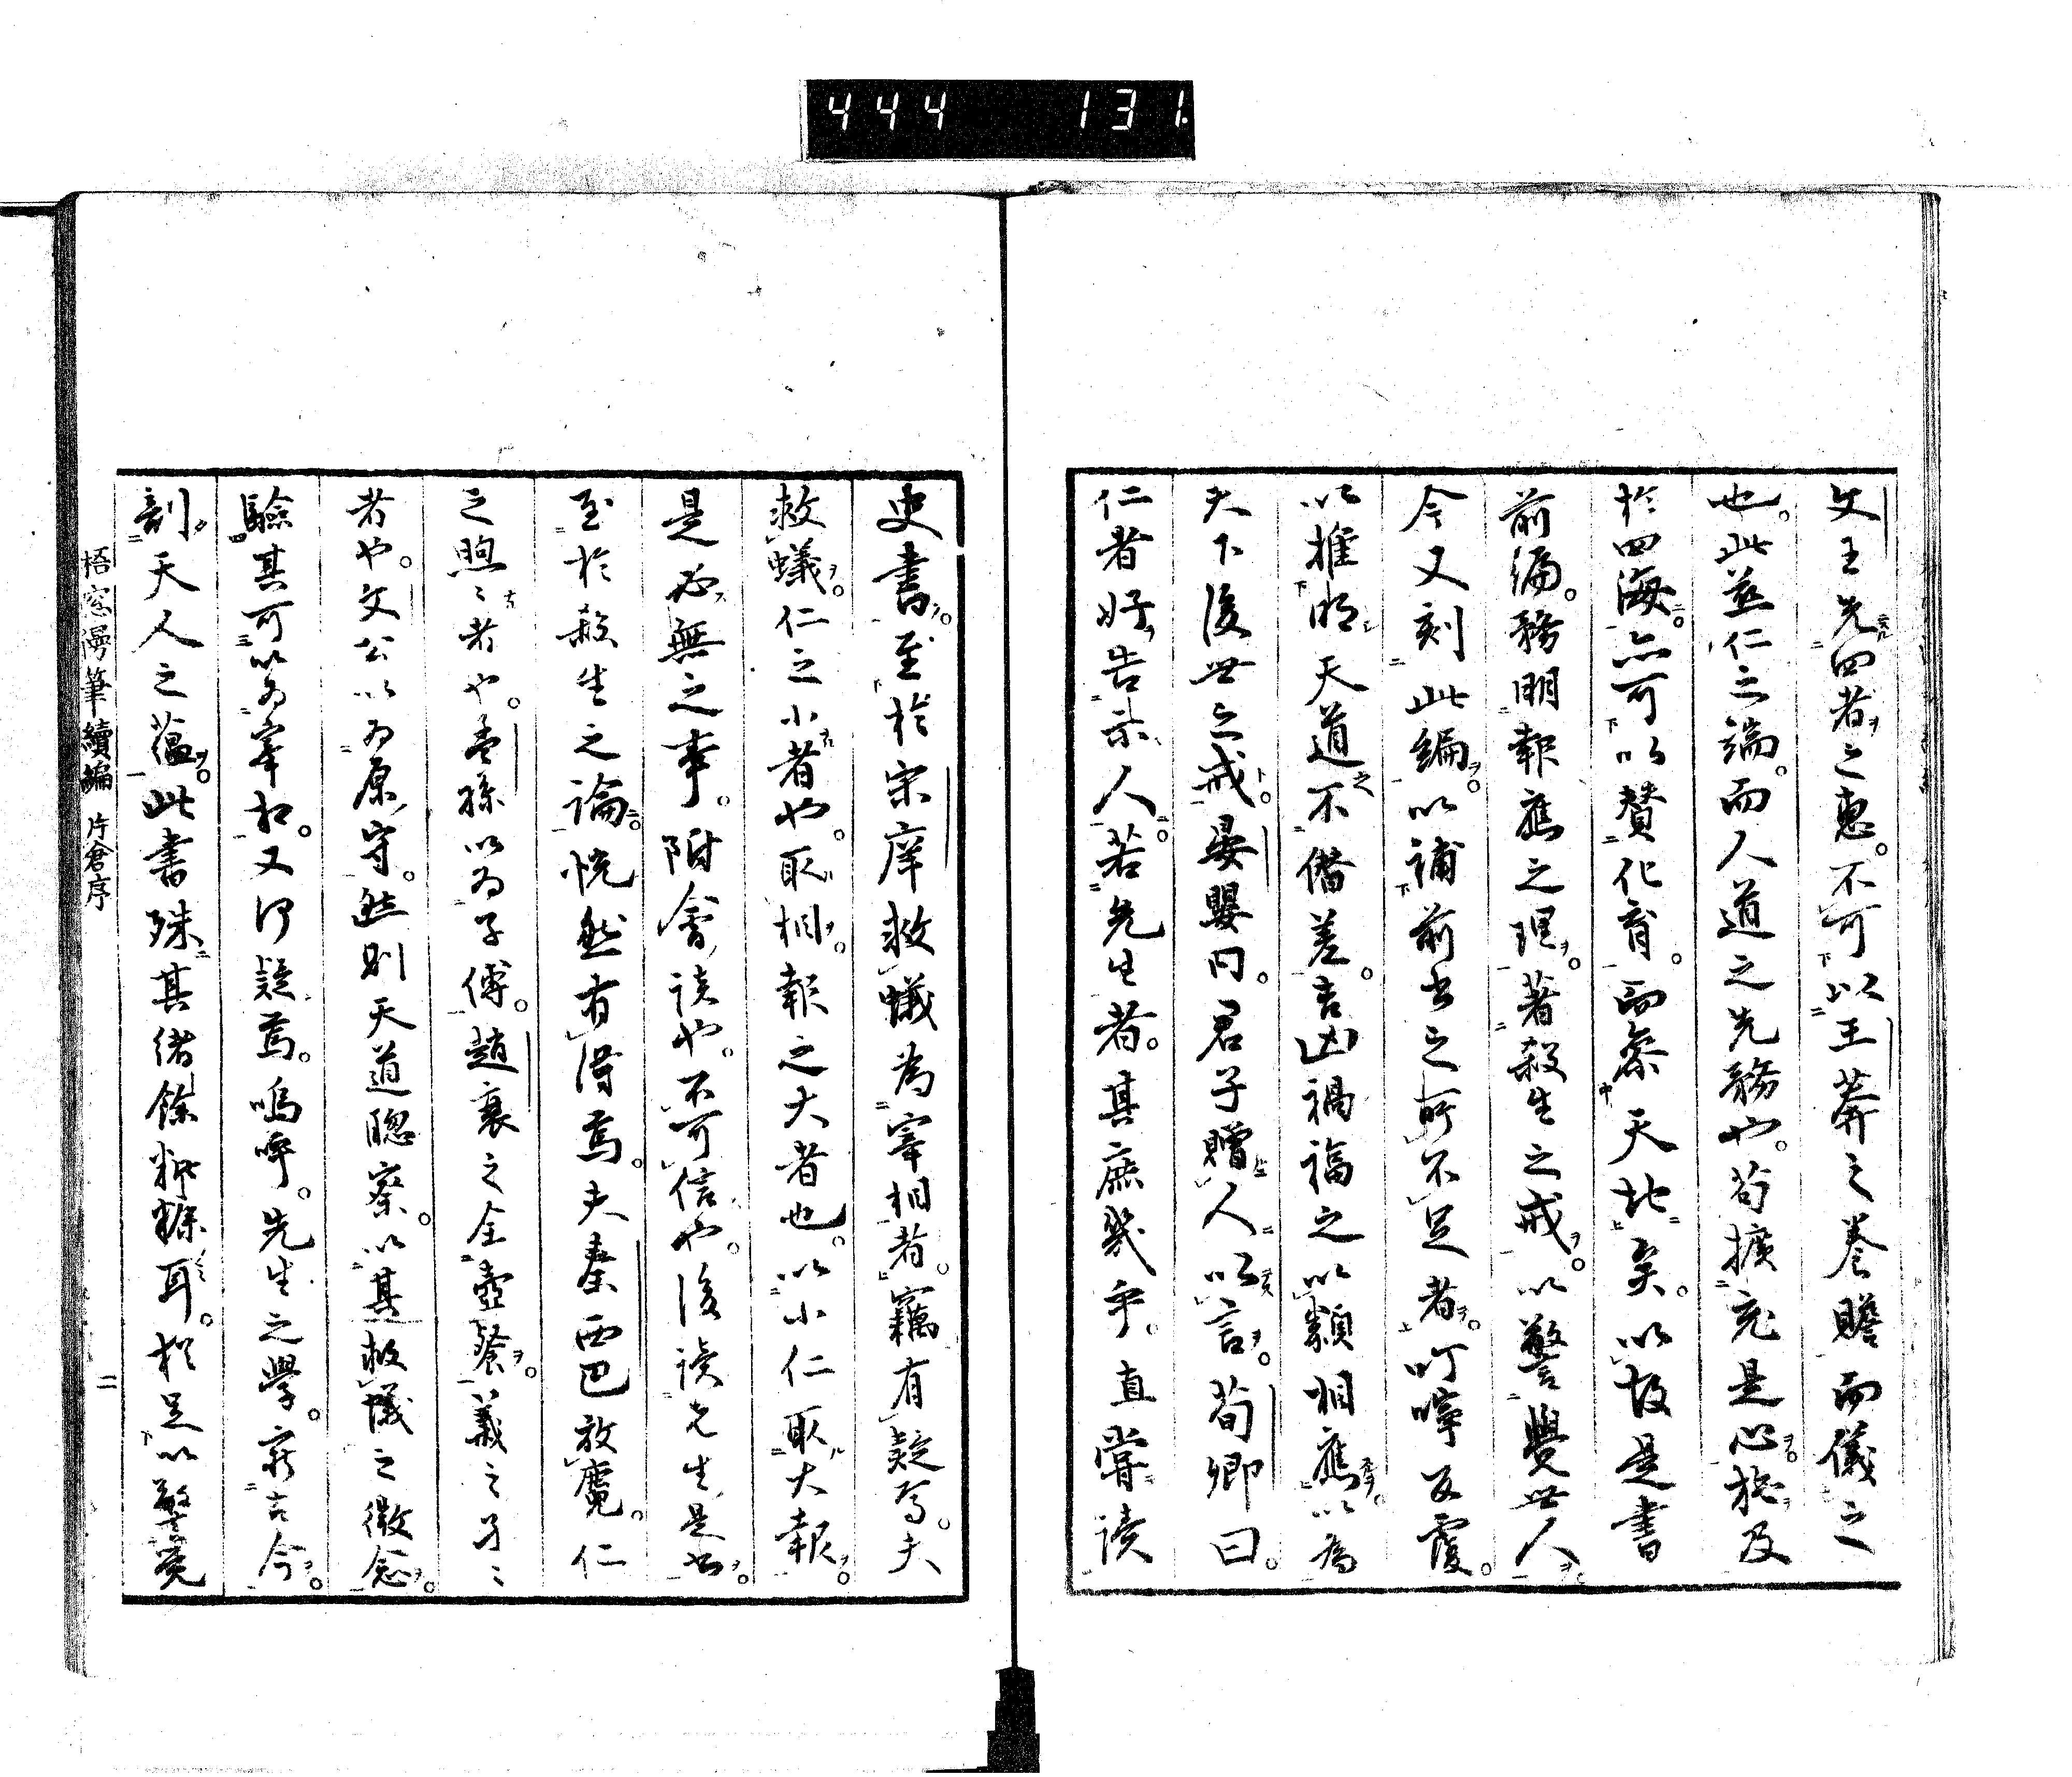 444 131
文王先四者之惠。不可以王莽之養贍而儀之
也。此並仁之端。而人道之先務也。苟擴充是心。施及
於四海。亦可以贊化育。而參天地矣。以故是書
前編。務明報應之理。著殺生之戒。以警覺世人。
今又刻此編。以補前書之所不足者。叮嚀反覆。
以推明天道不僭差。吉凶禍福之以類相應。以為
天下後世之戒。晏嬰曰。君子贈人以言。荀卿曰。
仁者好告示人。若先生者。其庶幾乎。直嘗讀
史書。至於宋庠救蟻為宰相者。竊有疑焉。夫
救蟻。仁之小者也。取相。報之大者也。以小仁取大報。
是必無之事。附會談也。不可信也。後讀先生是書。
至於殺生之論。恍然有得焉。夫秦西巴放麑。仁
之煦〻者也。孟孫以為子傅。趙衰之全壺飱。義之孑〻
者也。文公以為原守。然則天道聰察。以其救蟻之微念。
驗其可以為宰相。又何疑焉。嗚呼。先生之學。窮古今。
剖天人之蘊。此書殊其緒餘粃糠耳。猶足以警覺
梧窓漫筆續編 片倉序 二